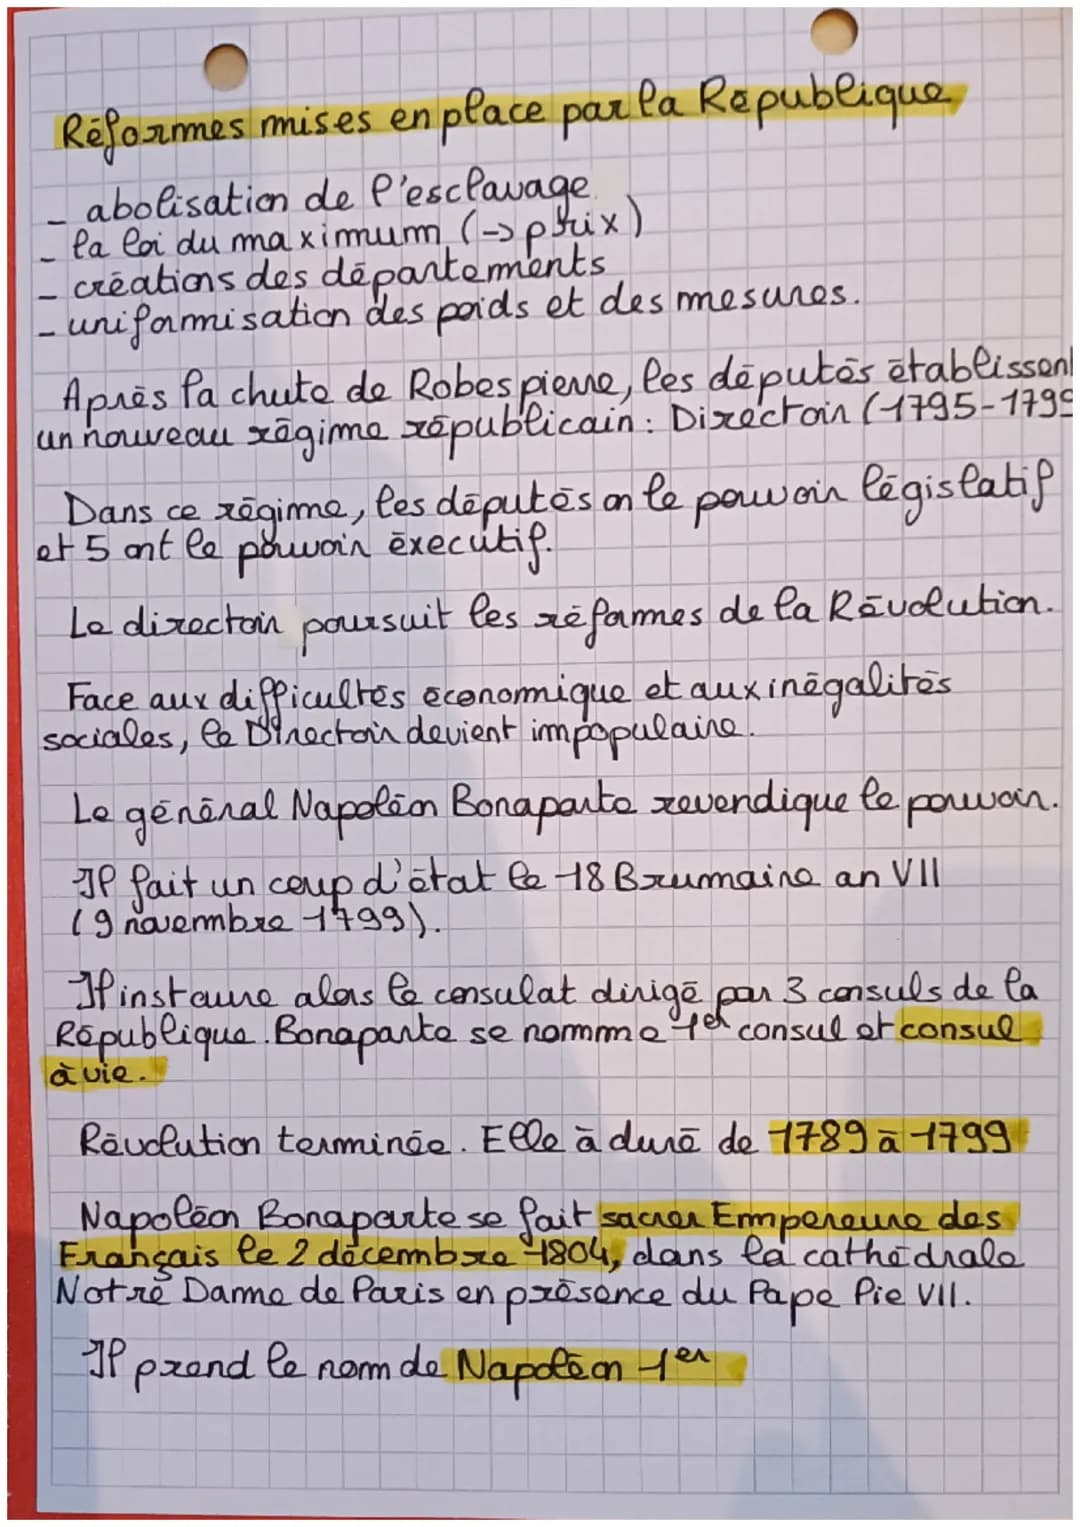 Réformes mises en place par la République
- abolisation de l'esclavage
- la loi du maximum (-> prix)
- créations des départements
- uniformisation des poids et des mesures.
Après la chute de Robespierre, les députés établissent
un nouveau régime républicain : Directoir (1795-1799
Dans ce régime, les députés on le pouvoir législatif
et 5 ont le pouvoir éxecutif.
Le directoir poursuit les réformes de la Révolution.
Face aux difficultés économique et aux inégalités
sociales, le Directoir devient impopulaire.
Le général Napoléon Bonaparte revendique le pouvoir.
Il fait un coup d'état le 18 Brumaire an VII
(9 novembre 1799).
Il instaure alors le consulat dirigé par 3 consuls de la
République. Bonaparte se nomme 1er consul et consul
à vie.
Révolution terminée. Elle à duré de 1789 à 1799
Napoléon Bonaparte se fait sacrer Empereure des
Français le 2 décembre 1804, dans la cathédrale
Notre Dame de Paris en présence du Pape Pie VII.
Il prend le nom de Napoléon 1er